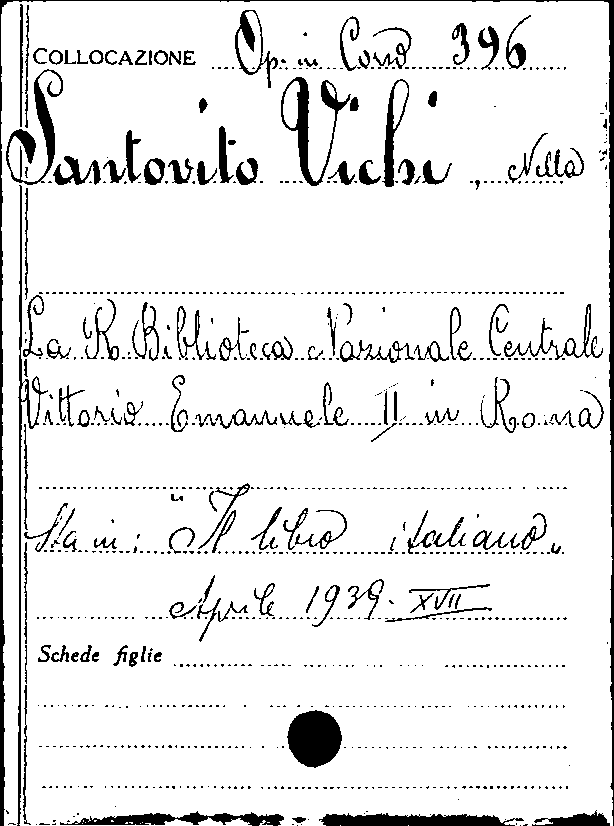 COLLOCAZIONE Op. in Corso 396
Santovito Vichi, Nella
La R. Biblioteca Nazionale Centrale
Vittorio Emanuele II in Roma
Sta in: "Il libro italiano„
Aprile 1939 - XVII
Schede figlie